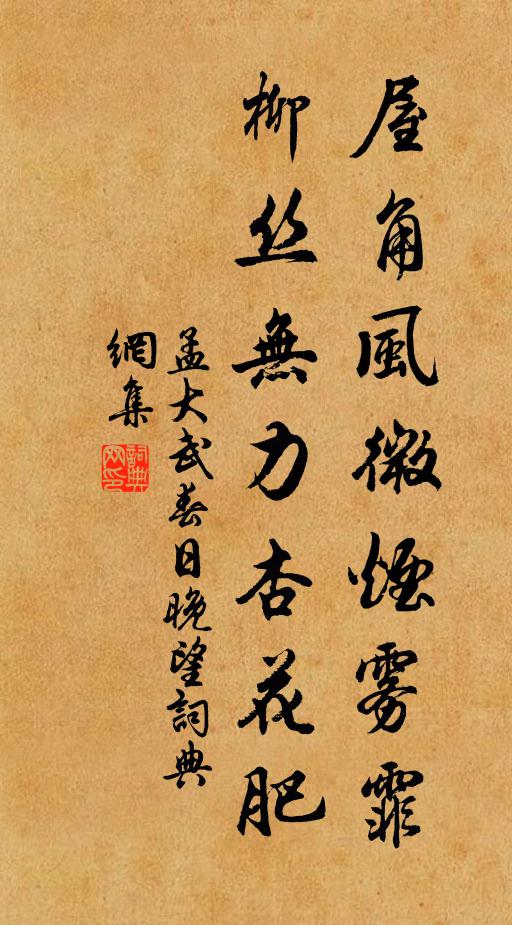 屋角風微煙霧霏
柳丝無力杏花肥
孟大武春日晚望詞典
網集
詞典
网印